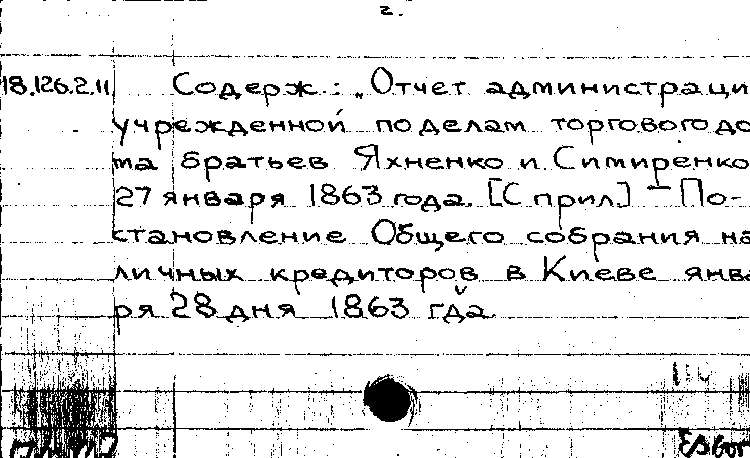 2.
18.126.2.11 Содерж.: „Отчет администраци
учрежденной по делам торгового до
ма братьев Яхненко и Симиренко
27 января 1863 года. [С прил.] – По-
становление Общего собрания на
личных кредиторов в Киеве янва
ря 28 дня 1863 гда